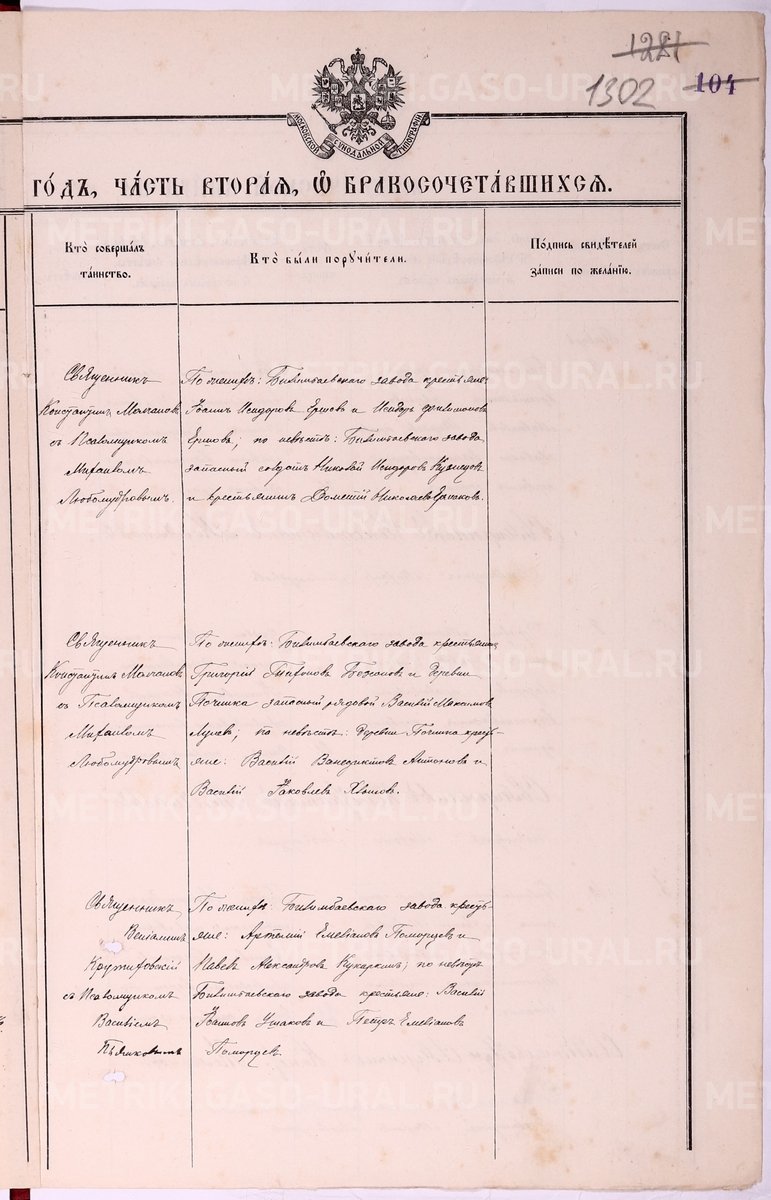 1221
1302
104
МОСКОВСКОЙ СѴНОДАЛЬНОЙ ТИПОГРАФІИ
ГО́ДЪ, ЧА́СТЬ ВТОРА́Я, Ѡ҆ БРАКОСОЧЕТА́ВШИХСЯ.
Кто̀ соверша́лъ
та́инство.
Кто̀ бы́ли поручи́тели.
По́дпись свидѣ́телей
за́писи по жела́нію.
Священникъ
Константинъ Молчановъ
съ Псаломщикомъ
Михаиломъ
Любомудровымъ.
По женихѣ: Билимбаевскаго завода крестьяне:
Іоаннъ Исидоровъ Ершовъ и Исидоръ
Ершовъ; по невѣстѣ: Билимбаевскаго завода
запасный солдатъ Николай Исидоровъ Кузнецовъ
и крестьянинъ Дометій Николаевъ
Священникъ
Константинъ Молчановъ
съ Псаломщикомъ
Михаиломъ
Любомудровымъ
По женихѣ: Билимбаевскаго завода крестьянинъ
Григорій Тихоновъ и деревни
Починка запасный рядовой Василій Максимовъ
по невѣстѣ: деревни Починка кресть-
яне: Василій Венедиктовъ Антоновъ и
Василій Яковлевъ
Священникъ
Веніаминъ
съ Псаломщикомъ
Василіемъ
Пьянковымъ
По женихѣ: Билимбаевскаго завода кресть-
яне: Артемій Емеліановъ Поморцевъ и
Павелъ Александровъ Кукаркинъ; по невѣстѣ
Билимбаевскаго завода крестьяне: Василій
Іоанновъ Ушаковъ и Петръ Емеліановъ
Поморцевъ.
METRIKI.GASO-URAL.RU